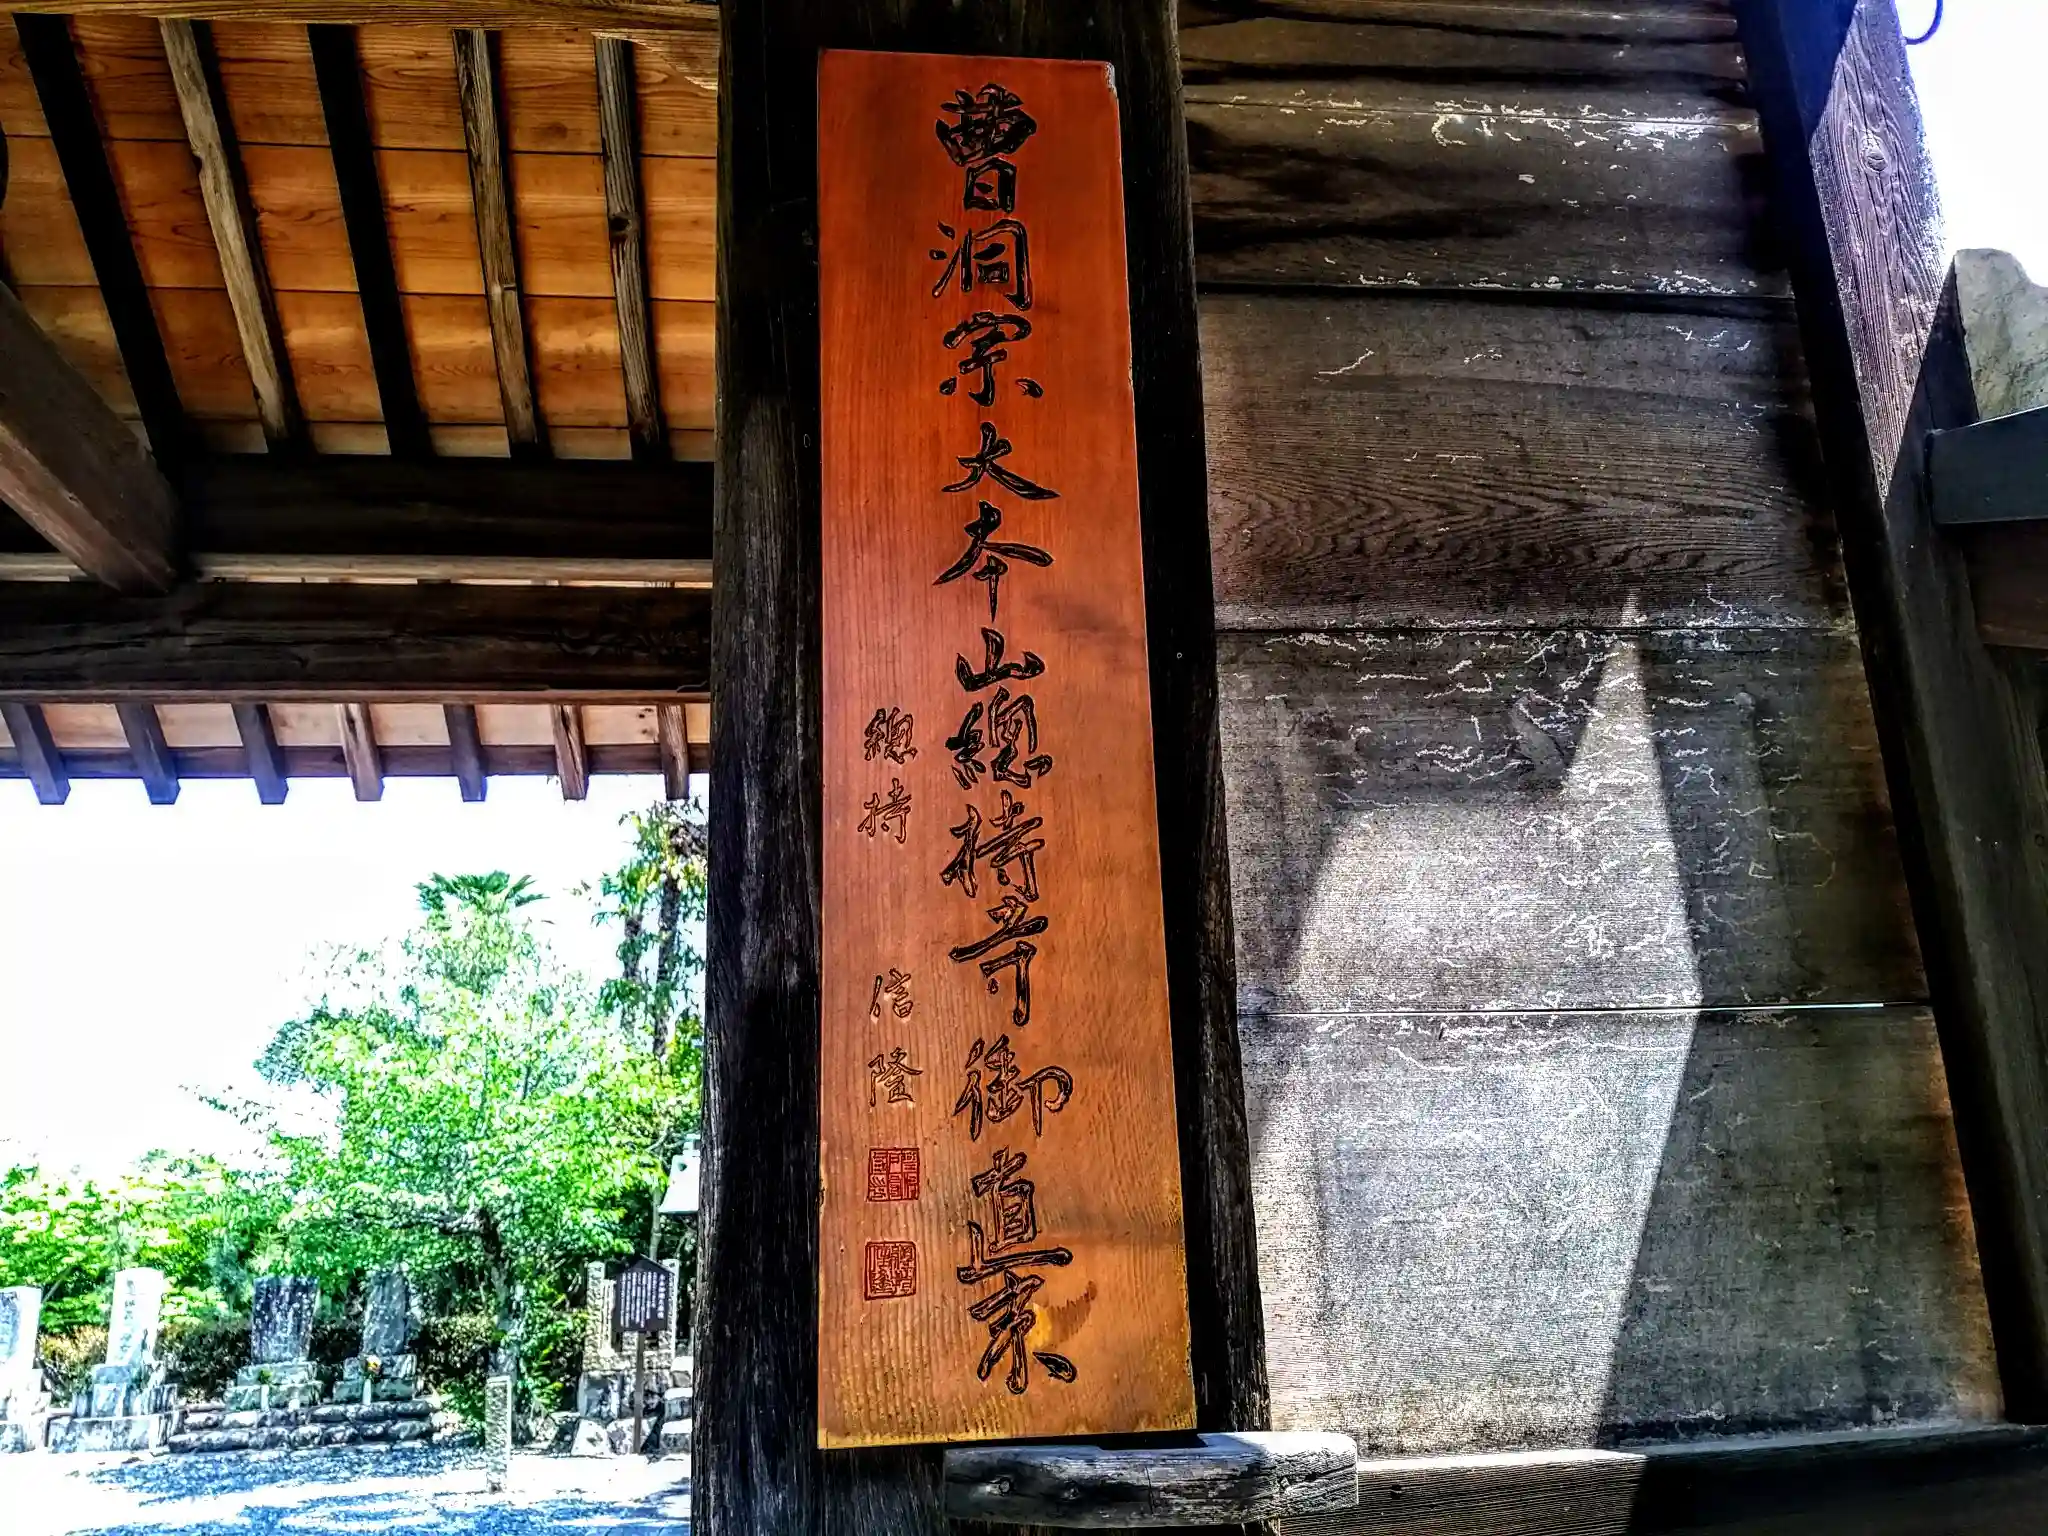 曹洞宗大本山總持寺御直末
總持 信隆